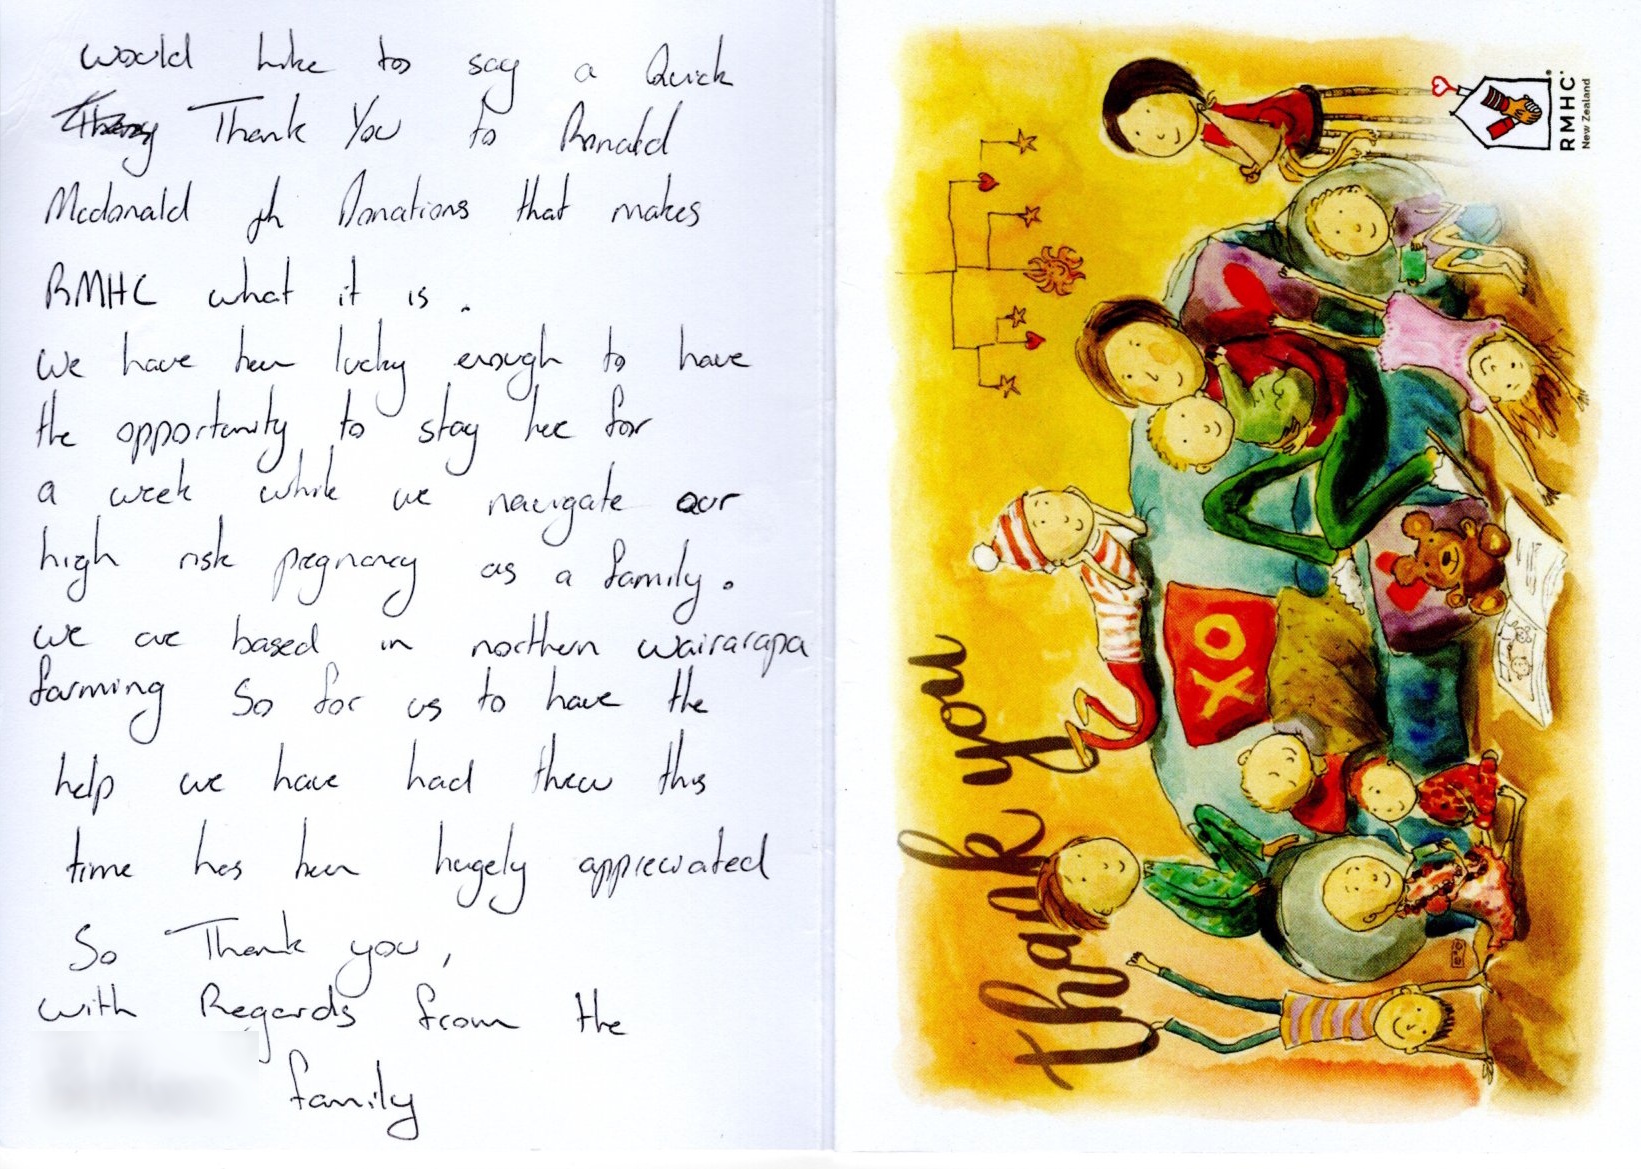 would like to say a Quick
Thank You to Ronald
Mcdonald Donations that makes
RMHC what it is.
we have been lucky enough to have
the opportunity to stay here for
a week while we navigate our
high risk pregnancy as a family.
we are based in northern wairarapa
farming So for us to have the
help we have had threw this
time has been hugely appreciated
So Thank you,
with Regards from the
family
thank you
XO
RMHC
New Zealand